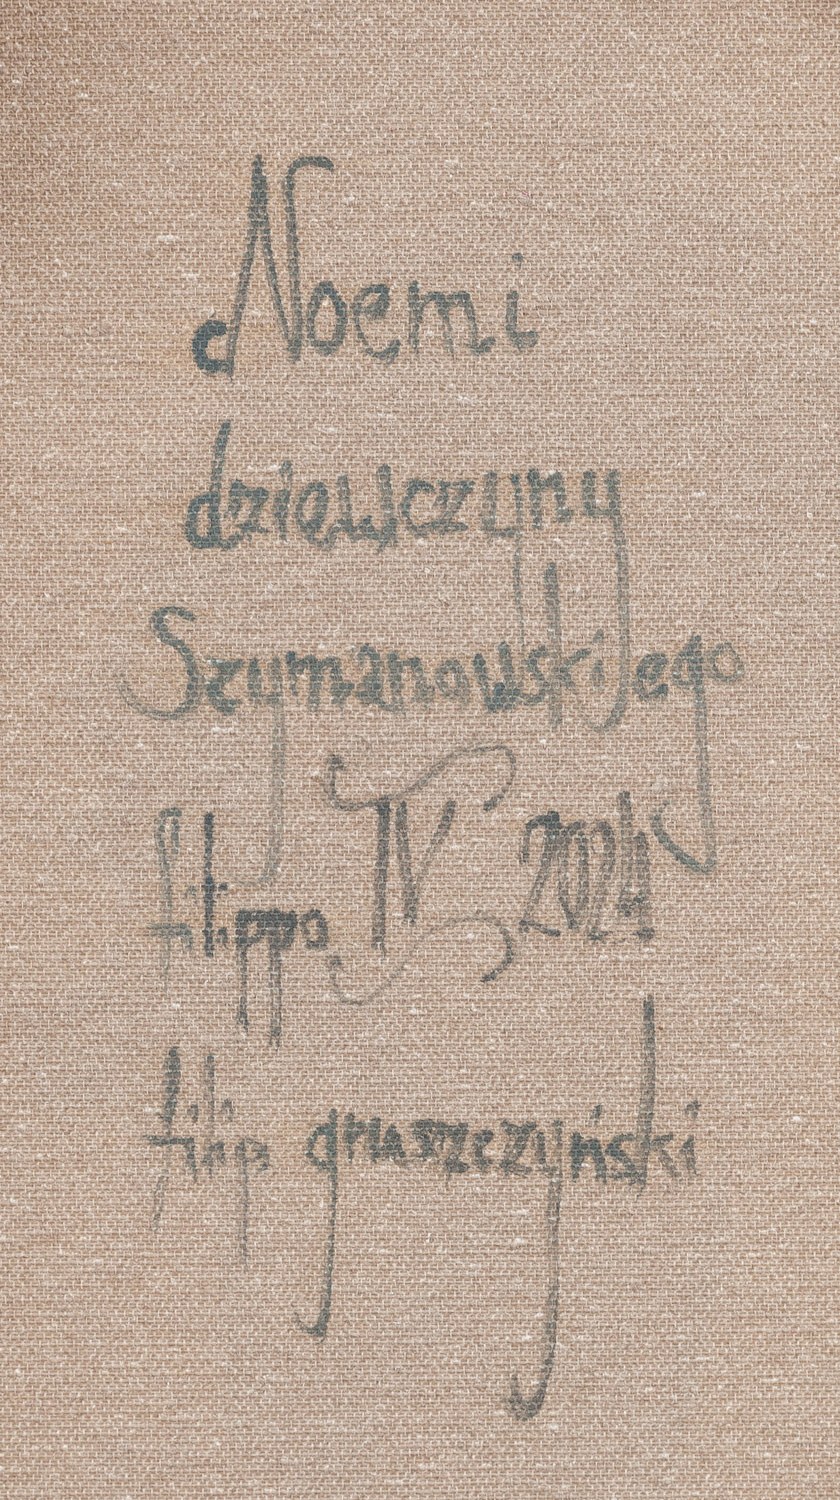 Noemi
dziewczyny
Szymanowskiego
filippo IV 2024
filip gruszczyński